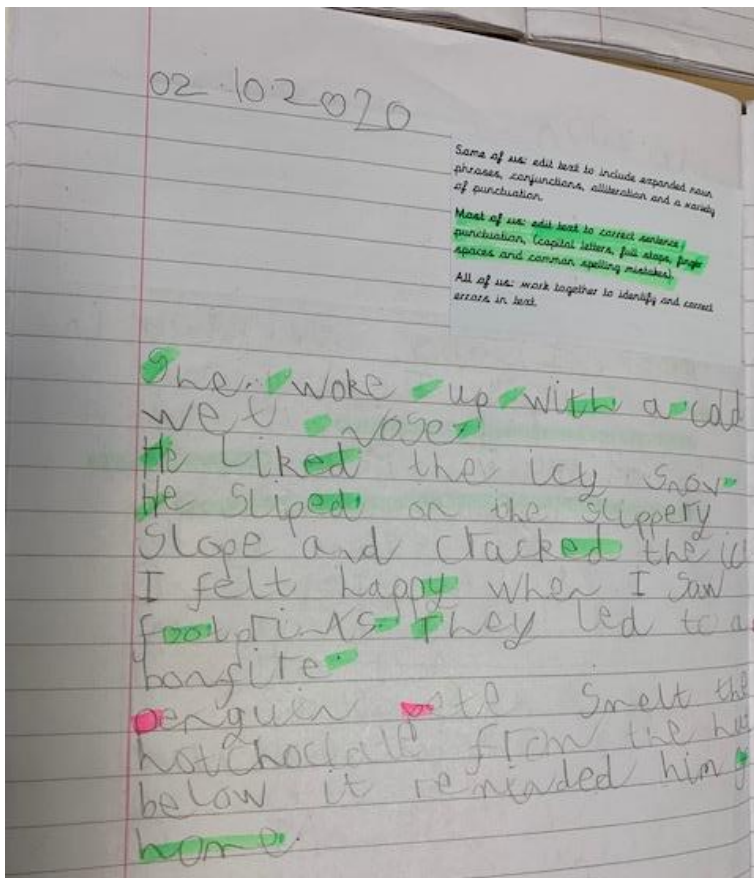 02.10.2020
Some of us: edit text to include expanded noun
phrases, conjunctions, alliteration and a variety
of punctuation.
Most of us: edit text to correct sentence
punctuation, (capital letters, full stops, finger
spaces and common spelling mistakes).
All of us: work together to identify and correct
errors in text.
She woke up with a cold
wet nose.
He liked the icy snow.
He sliped on the slippery
slope and cracked the ic
I felt happy when I saw
footprints. They led to a
bonfire.
penguin pete smelt the
hot from the hu
below it reminded him
home.